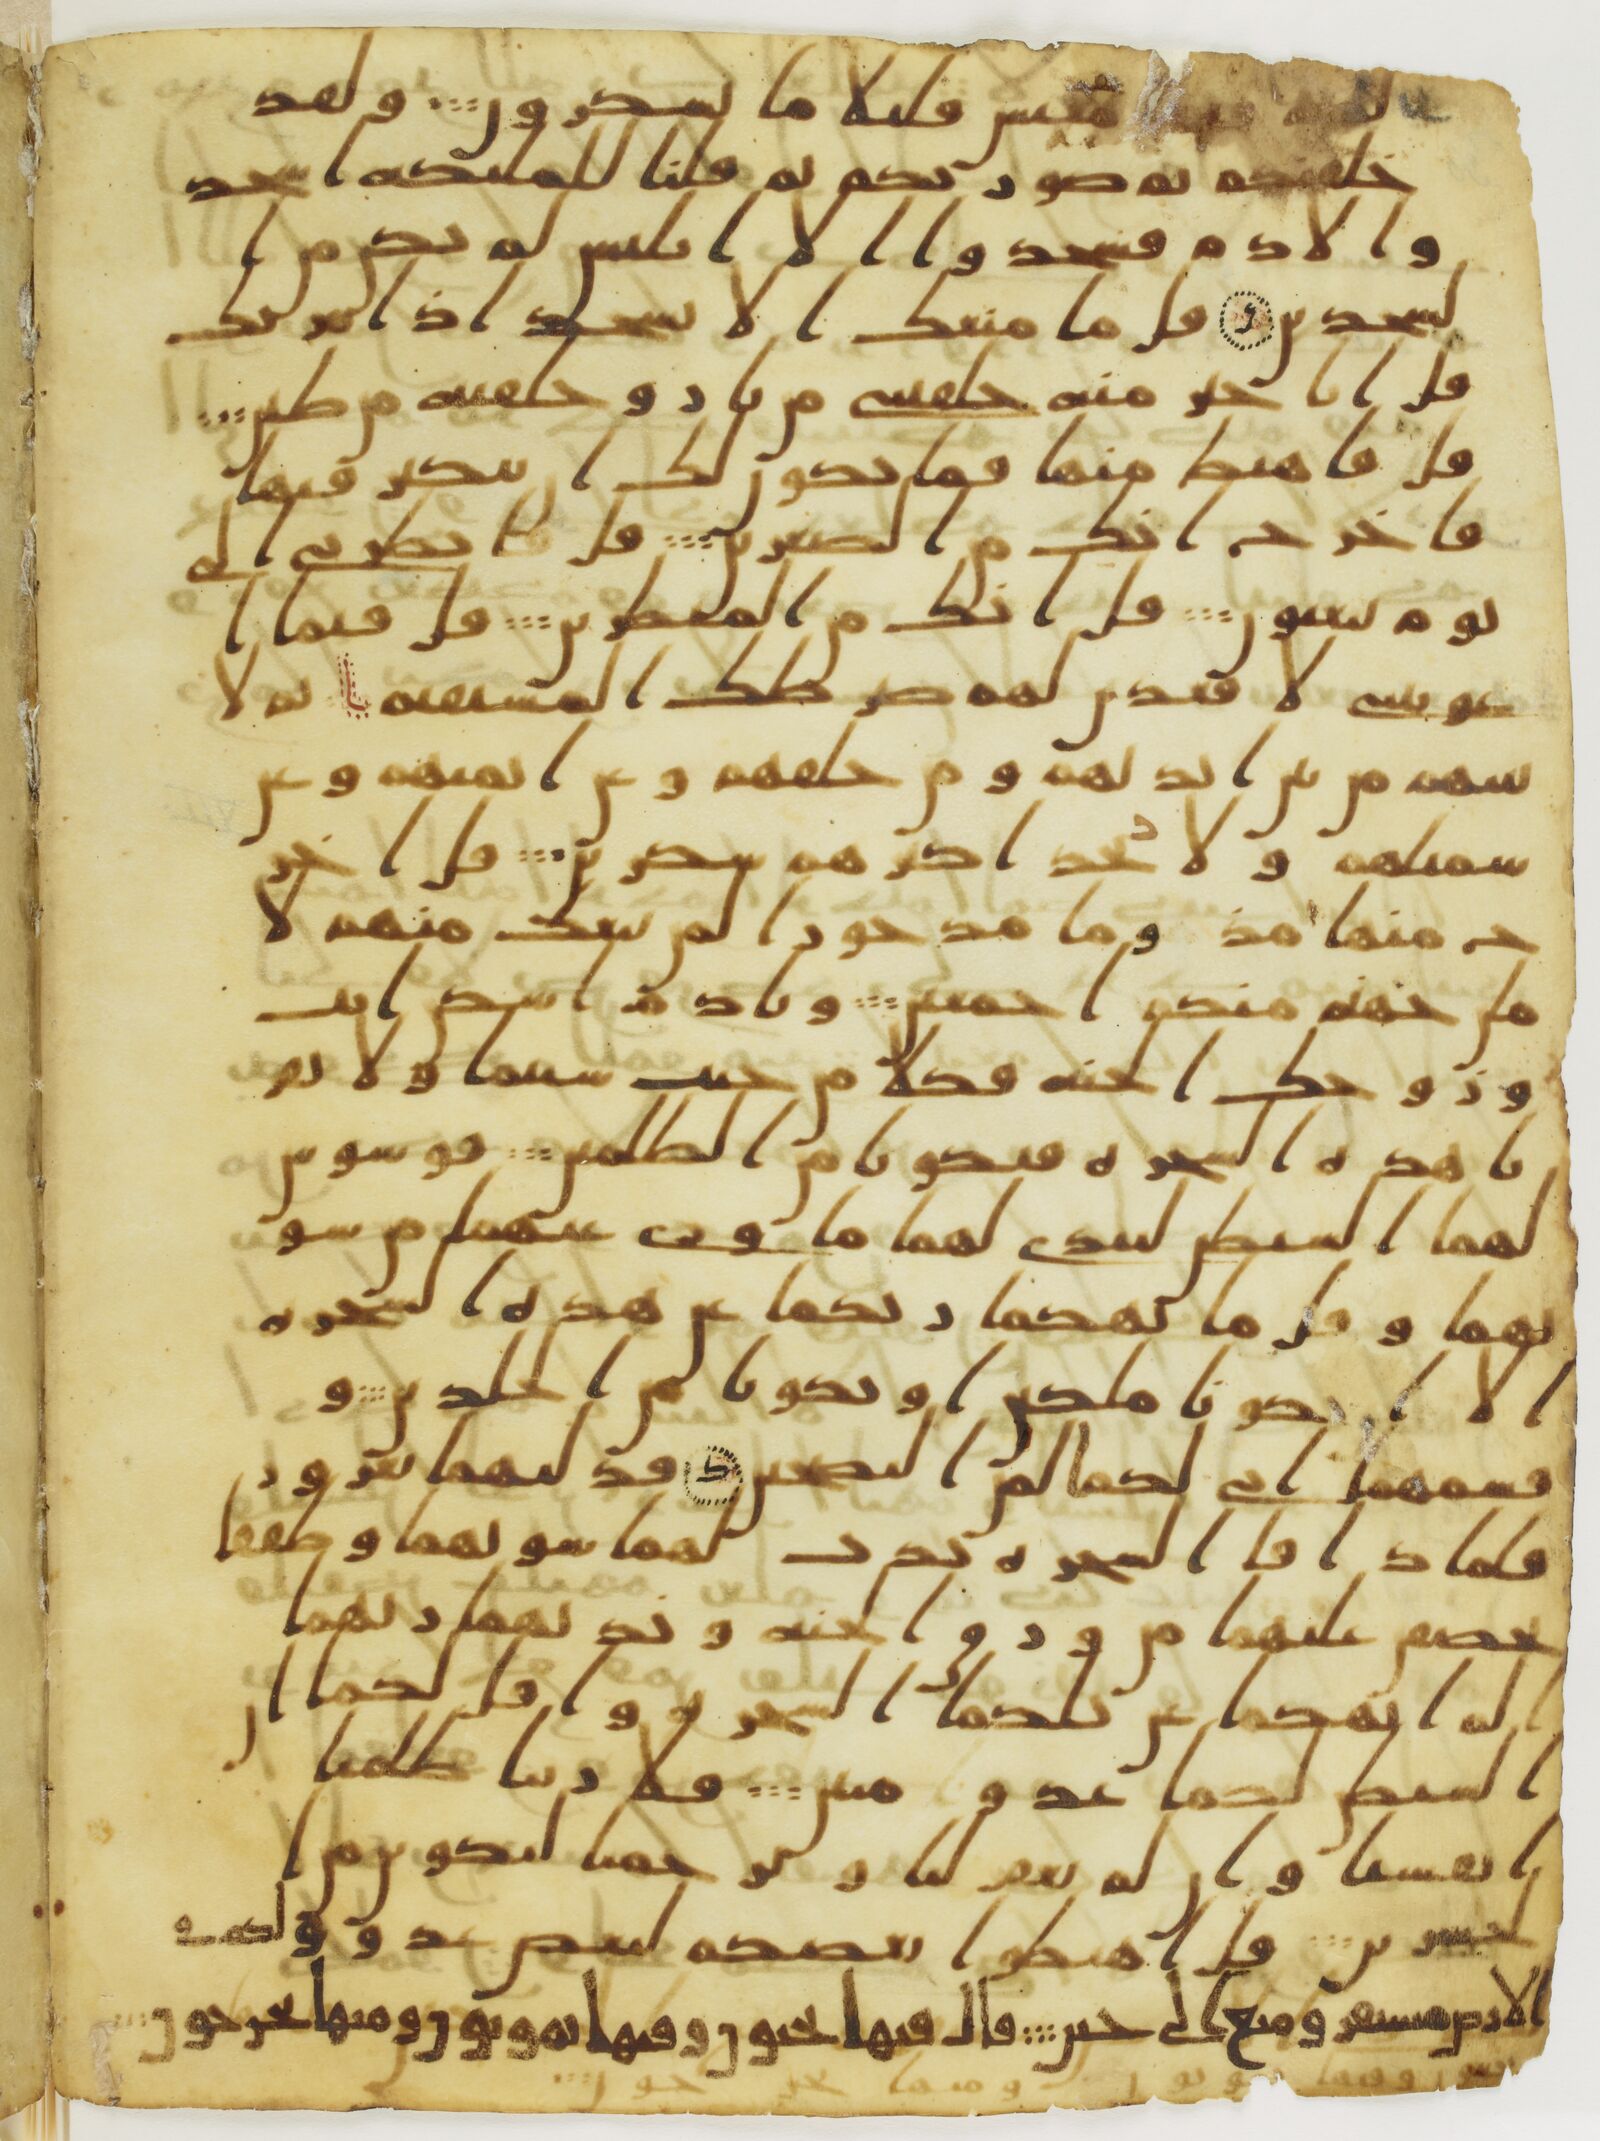 لكم فيها معيش قليلا ما تشكرون ولقد
خلقنكم ثم صورنكم ثم قلنا للملئكة اسجد
وا لادم فسجدوا الا ابليس لم يكن من ا
لسجدين قل ما منعك الا تسجد اذ امرتك
قل انا خير منه خلقتني من نار وخلقته من طين
قل فاهبط منها فما يكون لك ان تتكبر فيها
فاخرج انك من الصغرين قل انظرني الى
يوم يبعثون قل انك من المنظرين قل فبما ا
غويتني لاقعدن لهم صرطك المستقيم ثم لا
تينهم من بين ايديهم ومن خلفهم وعن ايمنهم وعن
شمائلهم ولا تجد اكثرهم شكرين قل اخر
ج منها مذوما مدحورا لمن تبعك منهم لا
ملن جهنم منكم اجمعين ويادم اسكن انت
وزوجك الجنة فكلا من حيث شئتما ولا تقر
با هذه الشجرة فتكونا من الظلمين فوسوس
لهما الشيطن ليبدي لهما ما وري عنهما من سو
تهما وقل ما نهيكما ربكما عن هذه الشجرة
الا ان تكونا ملكين او تكونا من الخلدين و
قسمهما اني لكما لمن النصحين فدليهما بغرور
فلما ذاقا الشجرة بدت لهما سوتهما وطفقا
يخصفن عليهما من ورق الجنة ونديهما ربهما
الم انهكما عن تلكما الشجرة واقل لكما ان
الشيطن لكما عدو مبين قلا ربنا ظلمنا
انفسنا وان لم تغفر لنا وترحمنا لنكونن من ا
لخسرين قل اهبطوا بعضكم لبعض عدو ولكم في
الارض مستقر ومتع الى حين قال فيها تحيون وفيها تموتون ومنها تخرجون